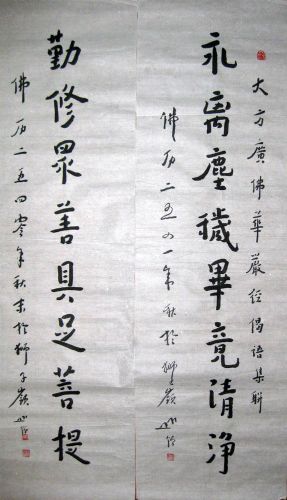 大方廣佛華嚴经偈语集聯
永离塵穢畢竟清净
佛历二五四一年秋於狮子嶺
勤修眾善具足菩提
佛历二五四零年秋末於狮子嶺